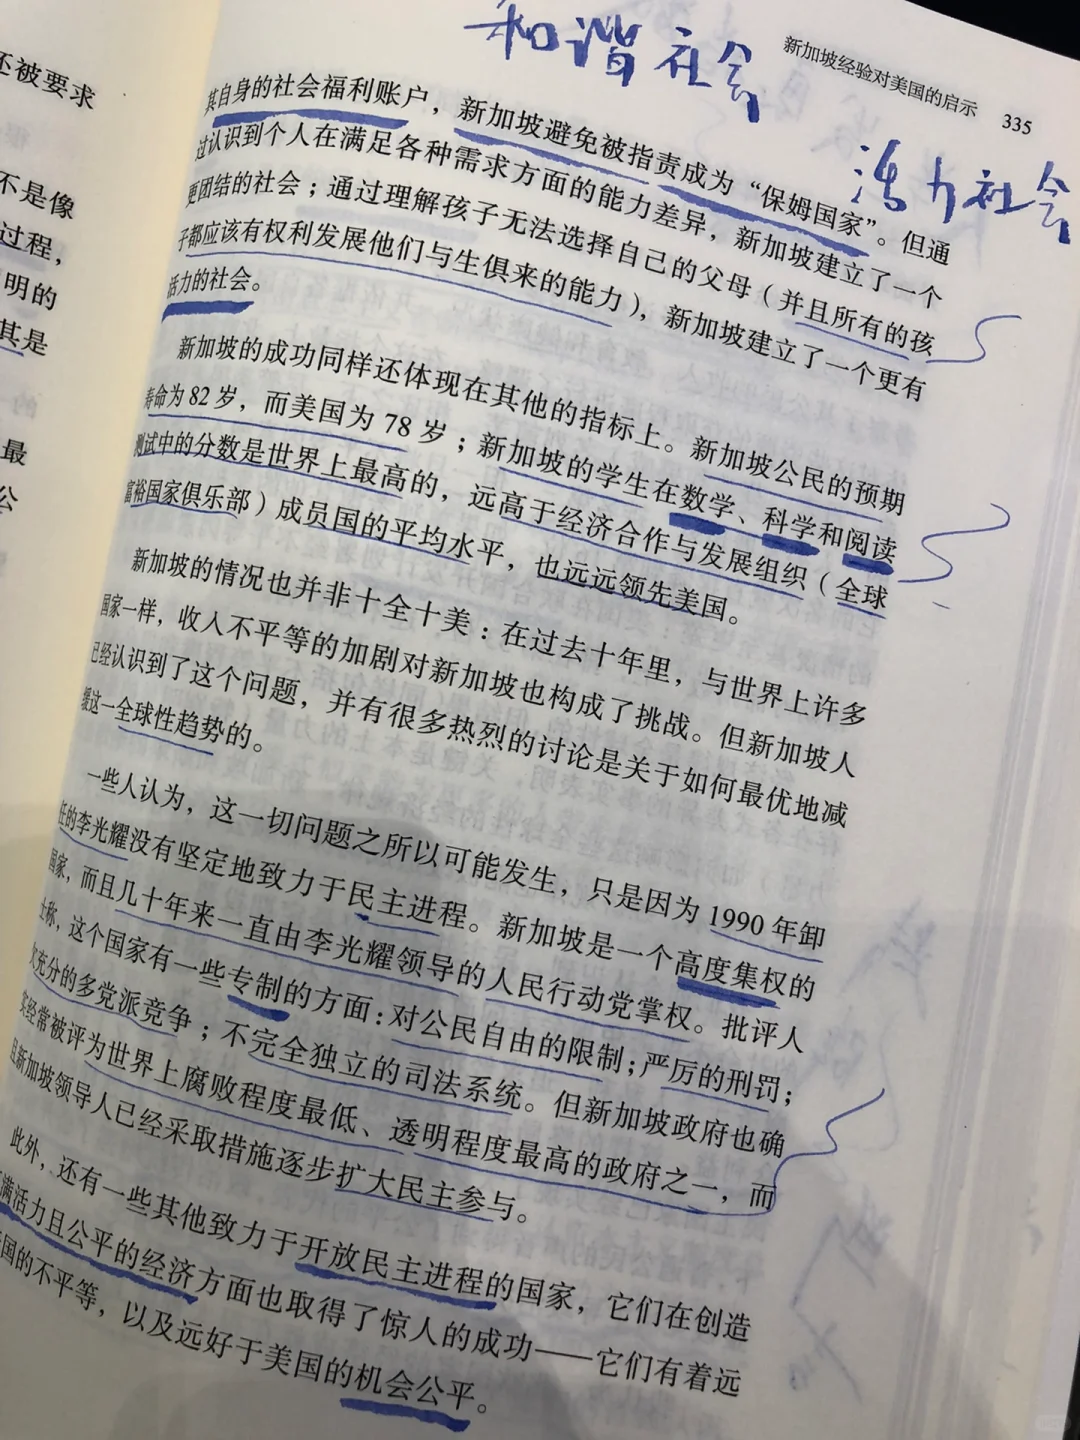 还被要求
不是像
过程，
明的
其是
最
公
和谐社会
新加坡经验对美国的启示 335
活力社会
其自身的社会福利账户，新加坡避免被指责成为“保姆国家”。但通
过认识到个人在满足各种需求方面的能力差异，新加坡建立了一个
更团结的社会；通过理解孩子无法选择自己的父母（并且所有的孩
子都应该有权利发展他们与生俱来的能力），新加坡建立了一个更有
活力的社会。
新加坡的成功同样还体现在其他的指标上。新加坡公民的预期
寿命为82岁，而美国为78岁；新加坡的学生在数学、科学和阅读
测试中的分数是世界上最高的，远高于经济合作与发展组织（全球
富裕国家俱乐部）成员国的平均水平，也远远领先美国。
新加坡的情况也并非十全十美：在过去十年里，与世界上许多
国家一样，收入不平等的加剧对新加坡也构成了挑战。但新加坡人
已经认识到了这个问题，并有很多热烈的讨论是关于如何最优地减
缓这一全球性趋势的。
一些人认为，这一切问题之所以可能发生，只是因为1990年卸
任的李光耀没有坚定地致力于民主进程。新加坡是一个高度集权的
国家，而且几十年来一直由李光耀领导的人民行动党掌权。批评人
士称，这个国家有一些专制的方面：对公民自由的限制；严厉的刑罚；
欠充分的多党派竞争；不完全独立的司法系统。但新加坡政府也确
实经常被评为世界上腐败程度最低、透明程度最高的政府之一，而
且新加坡领导人已经采取措施逐步扩大民主参与。
此外，还有一些其他致力于开放民主进程的国家，它们在创造
满活力且公平的经济方面也取得了惊人的成功——它们有着远
国的不平等，以及远好于美国的机会公平。